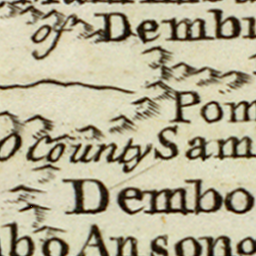 of Dembu
Pom
O County Sam
Dembo
bo Ansong